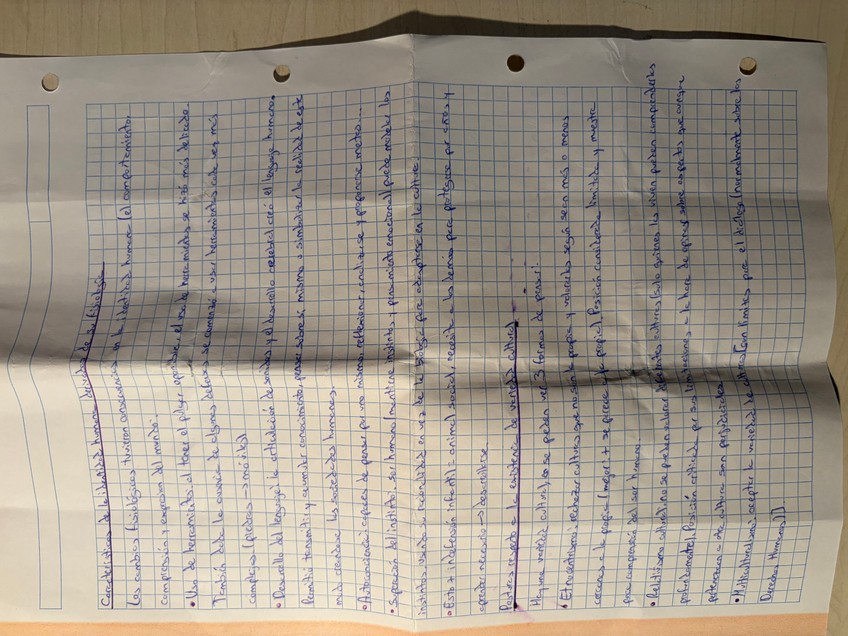 Características de la identidad humana derivadas de su fisiología
Los cambios fisiológicos tuvieron consecuencias en la identidad humana (el comportamiento,
comprensión y expresión del mundo.
• Uso de herramientas: al tener el pulgar oponible, el uso de herramientas se hizo más delicado.
También dada la carencia de algunas defensas se comenzó a usar herramientas cada vez más
complejas (piedras → móviles)
• Desarrollo del lenguaje: la articulación de sonidos y el desarrollo cerebral creó el lenguaje humano.
Permitía transmitir y acumular conocimiento, pensar sobre sí mismo o simbolizar la realidad de este
modo crearíamos las sociedades humanas.
• Autoconciencia: capaces de pensar por uno mismo, reflexionar, analizarse y proponerse metas...
• Superación del instinto: ser humano (mantiene instintos y pensamiento emocional) puede modelar los
instintos, usando su racionalidad en vez de la biología para adaptarse en la cultura.
• Esto + indefensión infantil = animal social, necesita a los demás para protegerse por crías y
aprender necesario → desarrollarse.
Posturas respecto a la existencia de variedad cultural
Hay una variedad cultural, en se pueden ver 3 formas de pensar:
• Etnocentrismo: rechazar culturas que no son la propia y valorarlas según sean más o menos
cercanas a la propia (mejor + se parece a la propia). Posición considerada limitada y muestra
poca comprensión del ser humano.
• Relativismo cultural: no se pueden valorar diferentes culturas (solo quienes las viven pueden comprenderlas
profundamente). Posición criticada por sus limitaciones a la hora de opinar sobre aspectos que aunque
pertenezcan a otra cultura son perjudiciales.
• Multiculturalismo: aceptar la variedad de culturas [con límites por el diálogo (normalmente sobre los
Derechos Humanos)].